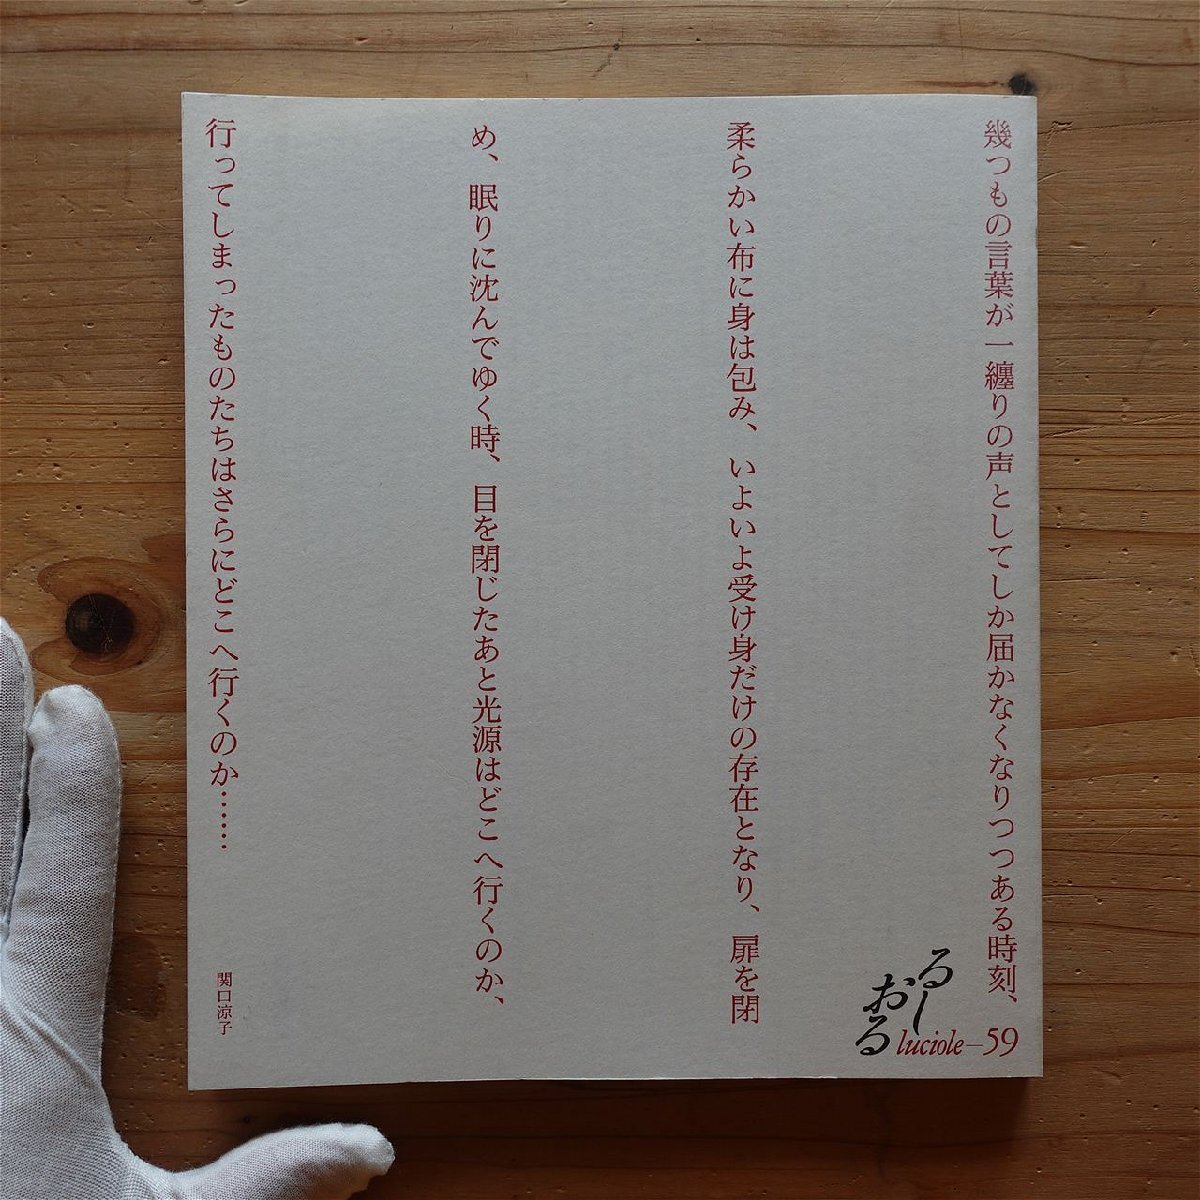 幾つもの言葉が一纏りの声としてしか届かなくなりつつある時刻、
柔らかい布に身は包み、いよいよ受け身だけの存在となり、扉を閉
め、眠りに沈んでゆく時、目を閉じたあと光源はどこへ行くのか、
行ってしまったものたちはさらにどこへ行くのか……
関口涼子
るしおる
luciole—59